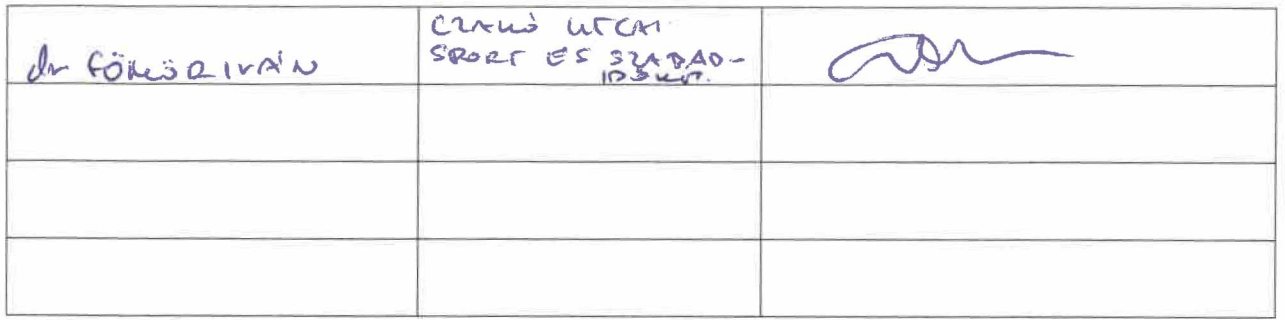 dr GÖMÖR IVÁN
CZAKÓ UTCAI
SPORT ÉS SZABAD-
IDŐKP.